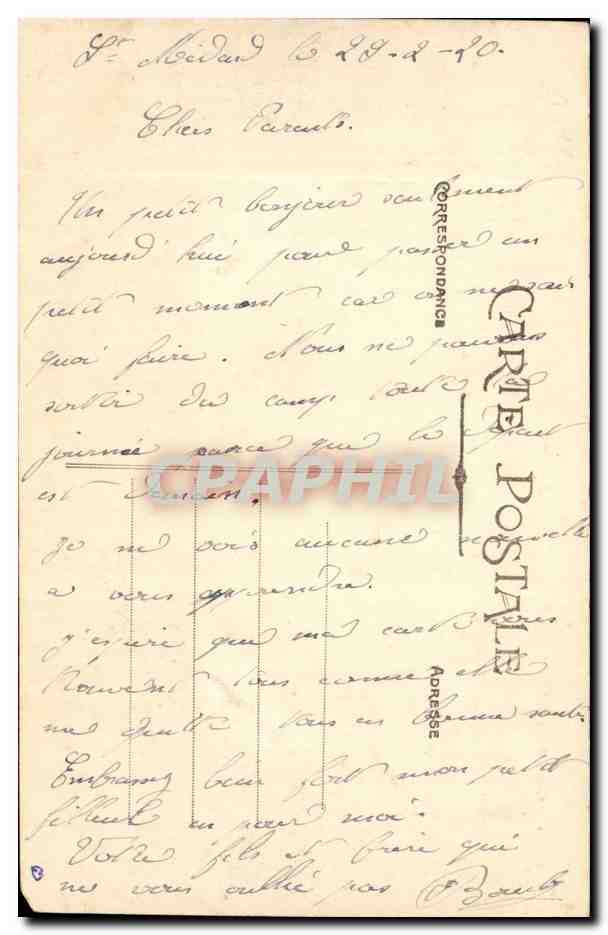 St Médard le 29-2-20.
Chers Parents.
Un petit bonjour seulement
aujourd'hui pour passer un
petit moment car on ne sait
quoi faire. Nous ne pouvons
sortir du camp toute la
journée parce que le départ
est demain.
Je ne vois aucune nouvelle
a vous apprendre.
j'espère que ma carte vous
trouvent tous comme elle
me quitte tous en bonne santé.
Embrassez bien fort mon petit
filleul pour moi.
Votre fils et frère qui
ne vous oublie pas
CORRESPONDANCE
CARTE POSTALE
ADRESSE
CPAPHIL